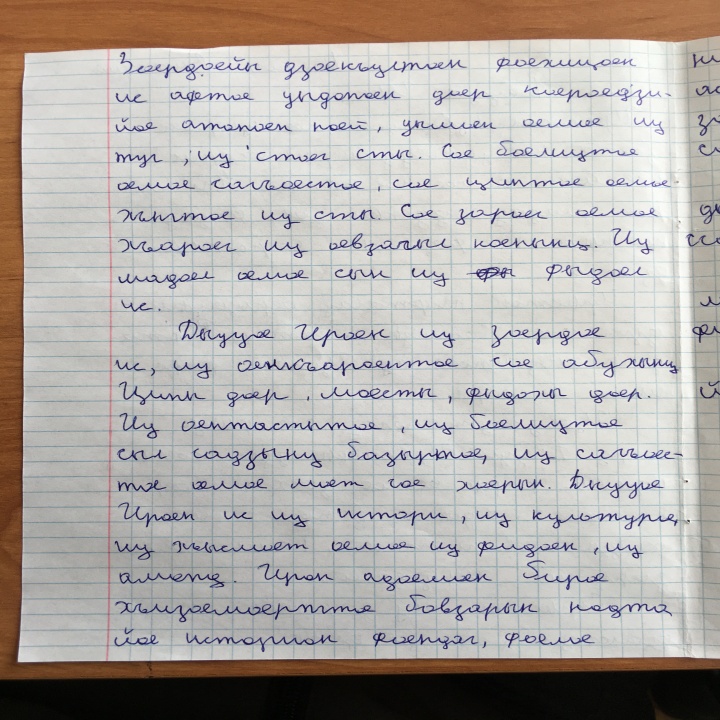 Зæрдæйы дзæкъултæн фæхицæн
ис афтæ уыдоном дæр кæрæдзи-
йæ атонæн нæй, уымæн æмæ иу
туг, иу стæг сты. Сæ бæлццтæ
æмæ сагъæстæ, сæ циптæ æмæ
хъыгтæ иу сты. Сæ зарæг æмæ
хъарæг иу æвзагыл кæнынц. Иу
мадæл æмæ сын иу фыдæл
ис.
Дыууæ Ирæн иу зæрдæ
ис, иу æнкъарæнтæ сæ абухынц
Цины дæр, мæсты, фыдохы дæр.
Иу æнтыстытæ, иу бæллицтæ
сыл садзынц базыртæ, иу сагъæс-
тæ æмæ мæт сæ хæрын. Дыууæ
Ирæн ис иу истори, иу культурæ,
иу хъысмæт æмæ иу фидæн, иу
амонд. Ирон адæмæн бирæ
хъызæмæрттæ бавзарын кодта
йæ историон фæндаг, фæлæ